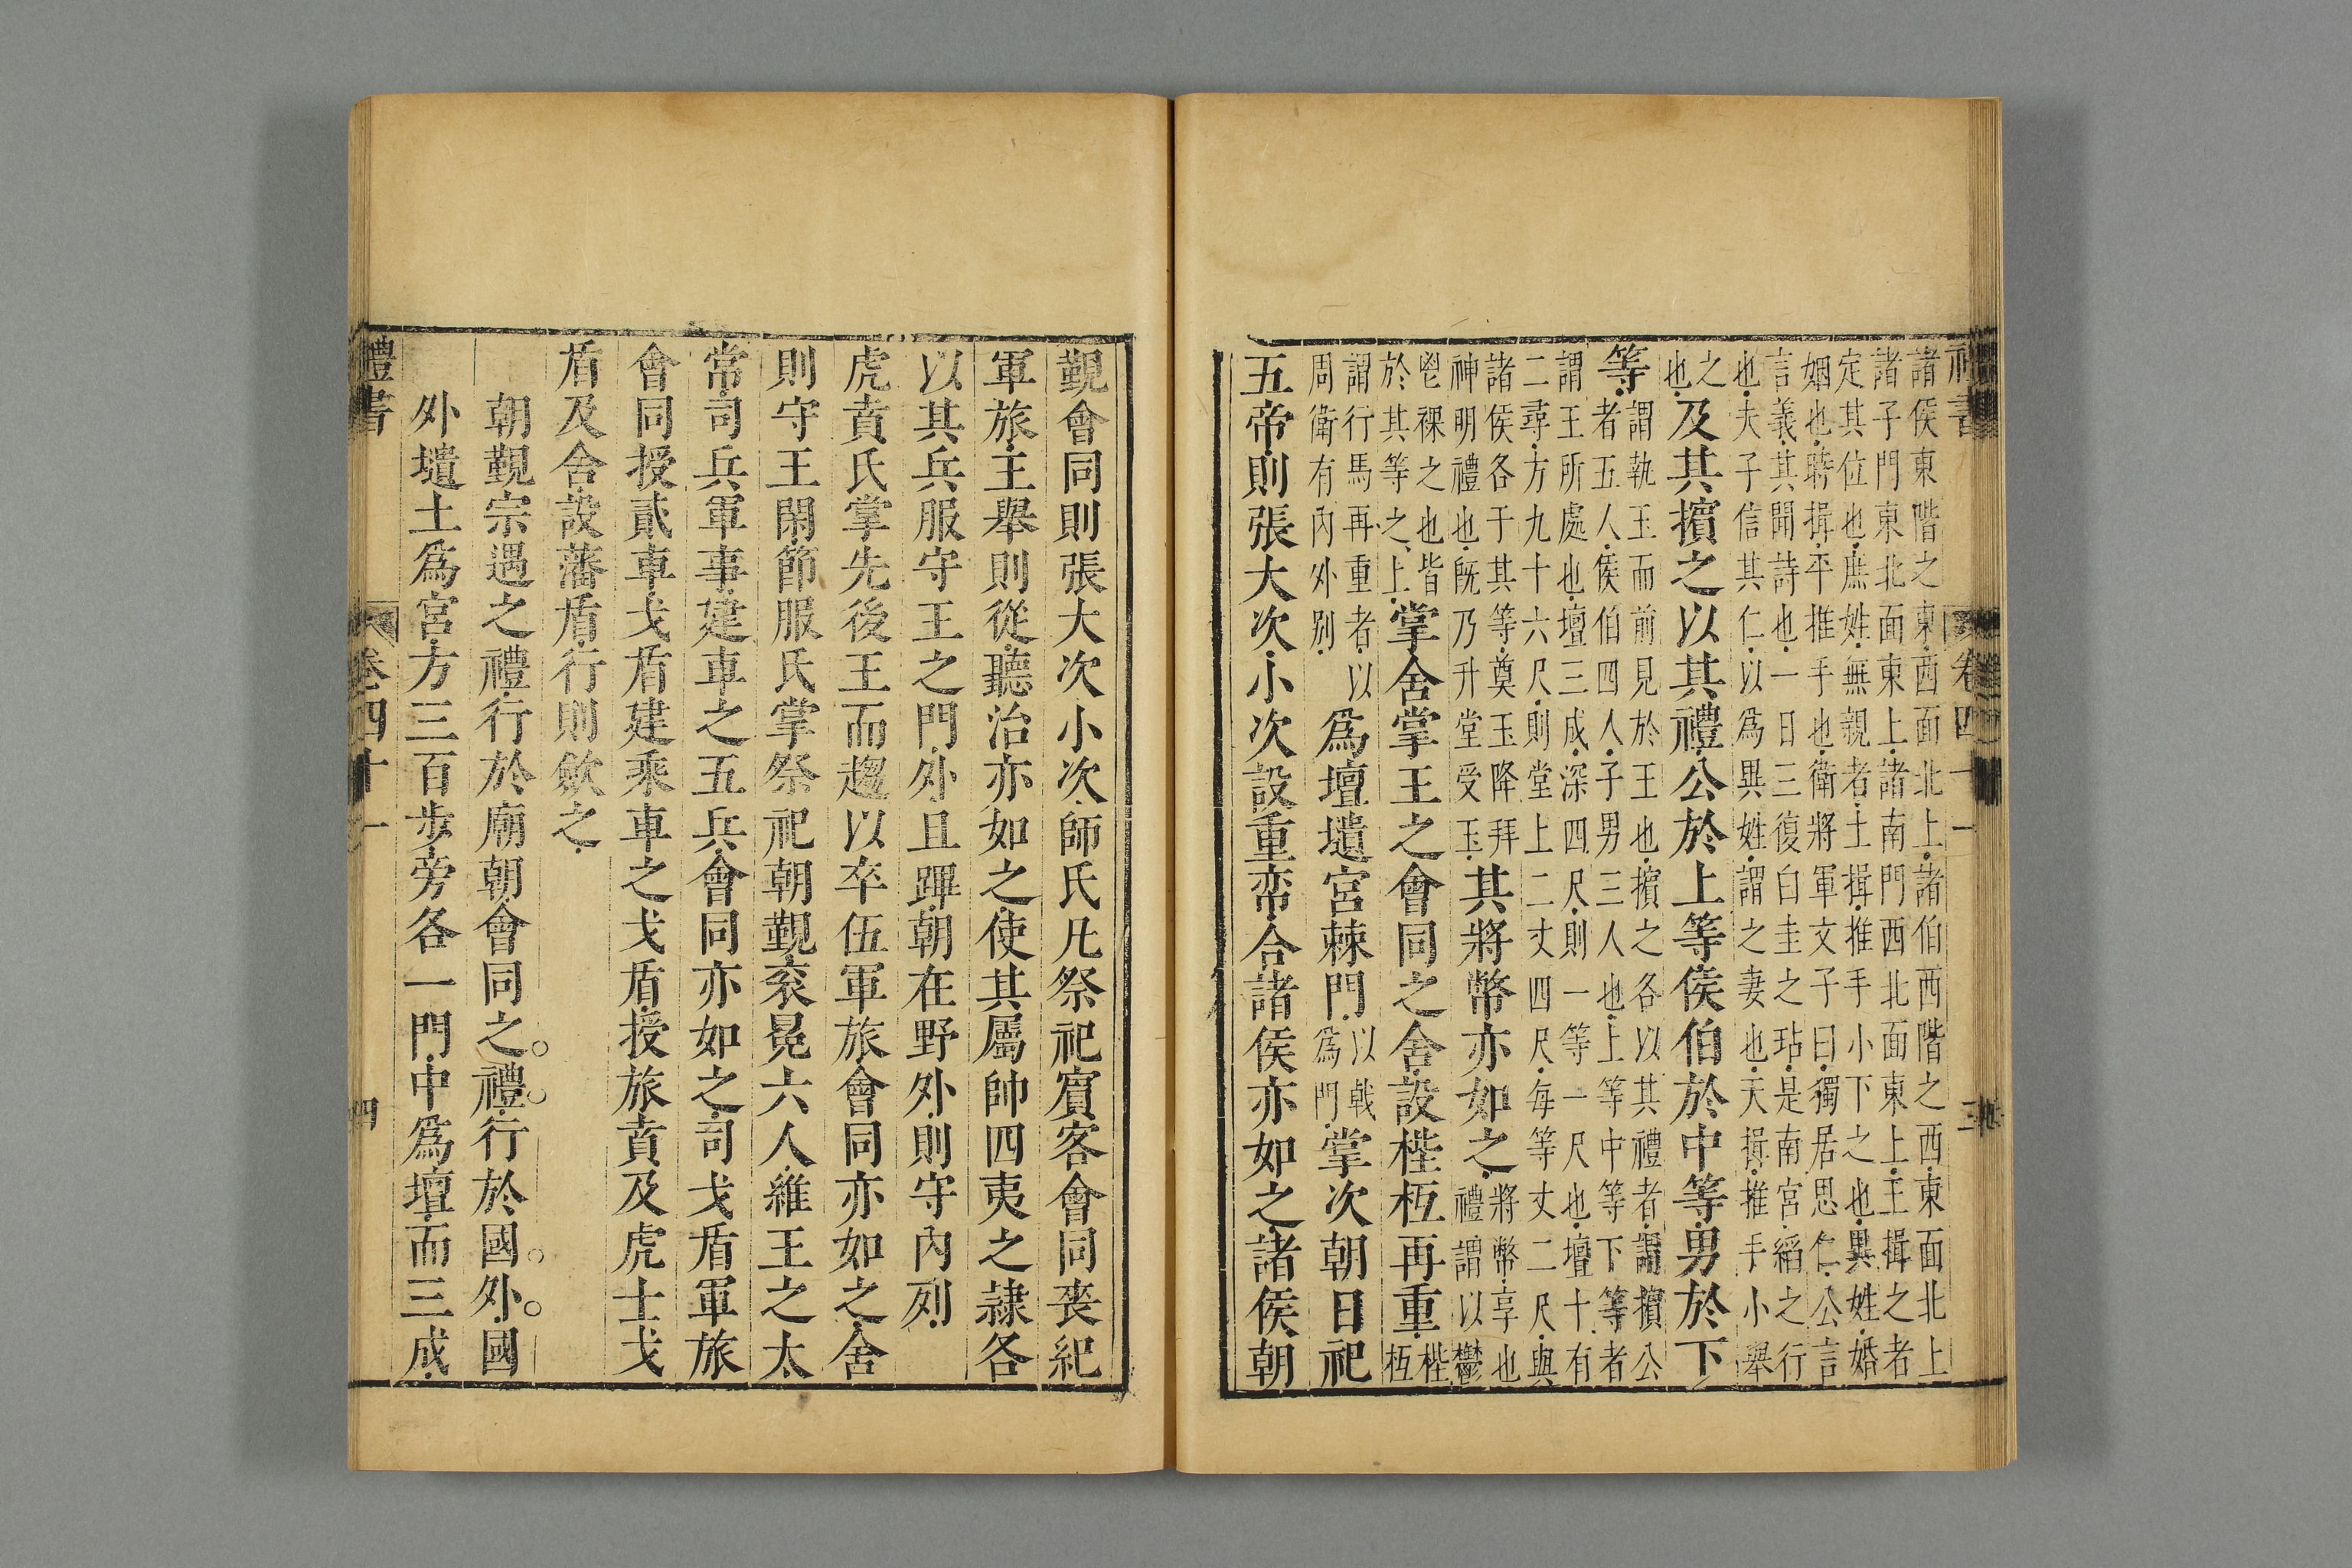 禮書 卷四十一 三
諸侯東階之東西面北上諸伯西階之西東面北上
諸子門東北面東上諸南門西北面東上王揖之者
定其位也庶姓無親者土揖推手小下之也異姓婚
姻也時揖平推手也衛將軍文子曰獨居思仁公言
言義其聞詩也一日三復白圭之玷是南宮縚之行
也夫子信其仁以爲異姓謂之妻也天揖推手小舉
之也及其擯之以其禮公於上等侯伯於中等男於下
等謂執玉而前見於王也擯之各以其禮者謂擯公
者五人侯伯四人子男三人也上等中等下等者
謂王所處也壇三成深四尺則一等一尺也壇十有
二尋方九十六尺則堂上二丈四尺每等丈二尺與
諸侯各于其等奠玉降拜神明禮也既乃升堂受玉其將幣亦如之將幣享也禮謂以鬱
鬯祼之也皆於其等之上掌舍掌王之會同之舍設梐枑再重梐枑
謂行馬再重者以周衛有內外別爲壇壝宮棘門以戟爲門掌次朝日祀
五帝則張大次小次設重帟合諸侯亦如之諸侯朝
覲會同則張大次小次師氏凡祭祀賓客會同喪紀
軍旅王舉則從聽治亦如之使其屬帥四夷之隷各
以其兵服守王之門外且蹕朝在野外則守內列
虎賁氏掌先後王而趨以卒伍軍旅會同亦如之舍
則守王閑節服氏掌祭祀朝覲袞冕六人維王之太
常司兵軍事建車之五兵會同亦如之司戈盾軍旅
會同授貳車戈盾建乘車之戈盾授旅賁及虎士戈
盾及舍設藩盾行則斂之
朝覲宗遇之禮行於廟朝會同之禮行於國外國
外壝土爲宮方三百步旁各一門中爲壇而三成
禮書 卷四十一 四